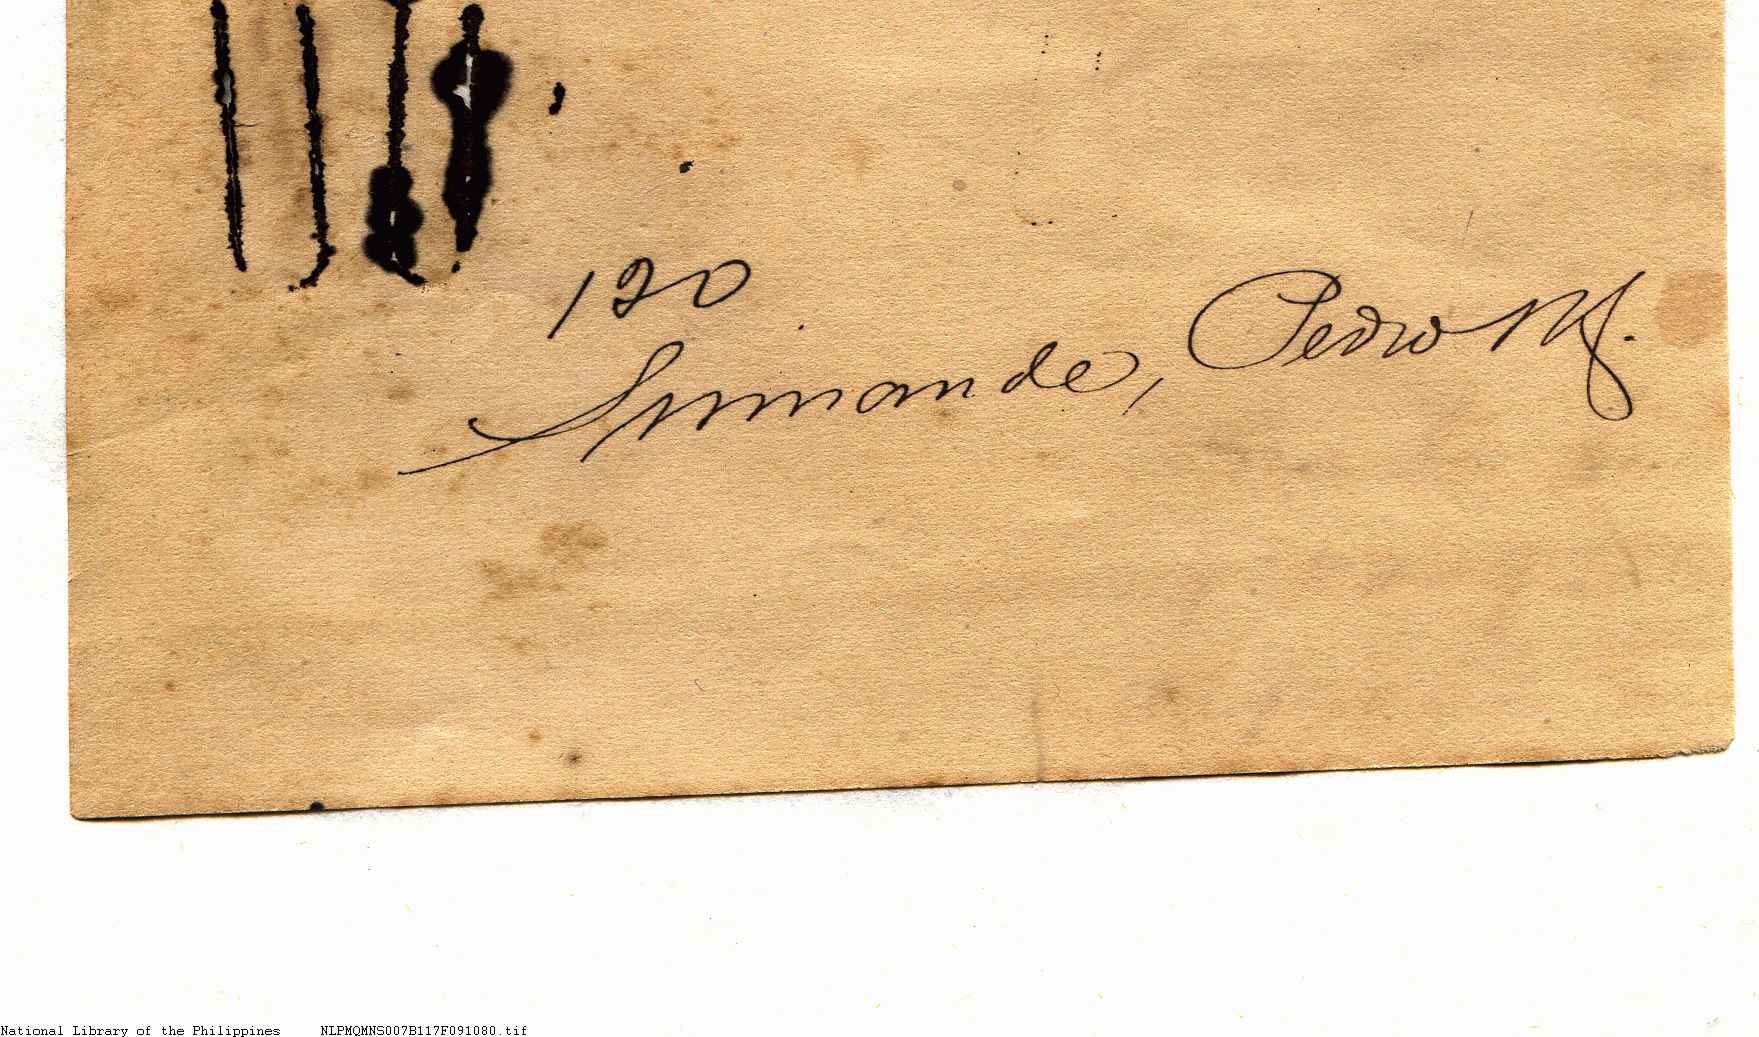 120
Lumande, Pedro M.
National Library of the Philippines NLPMQMNS007B117F091080.tif